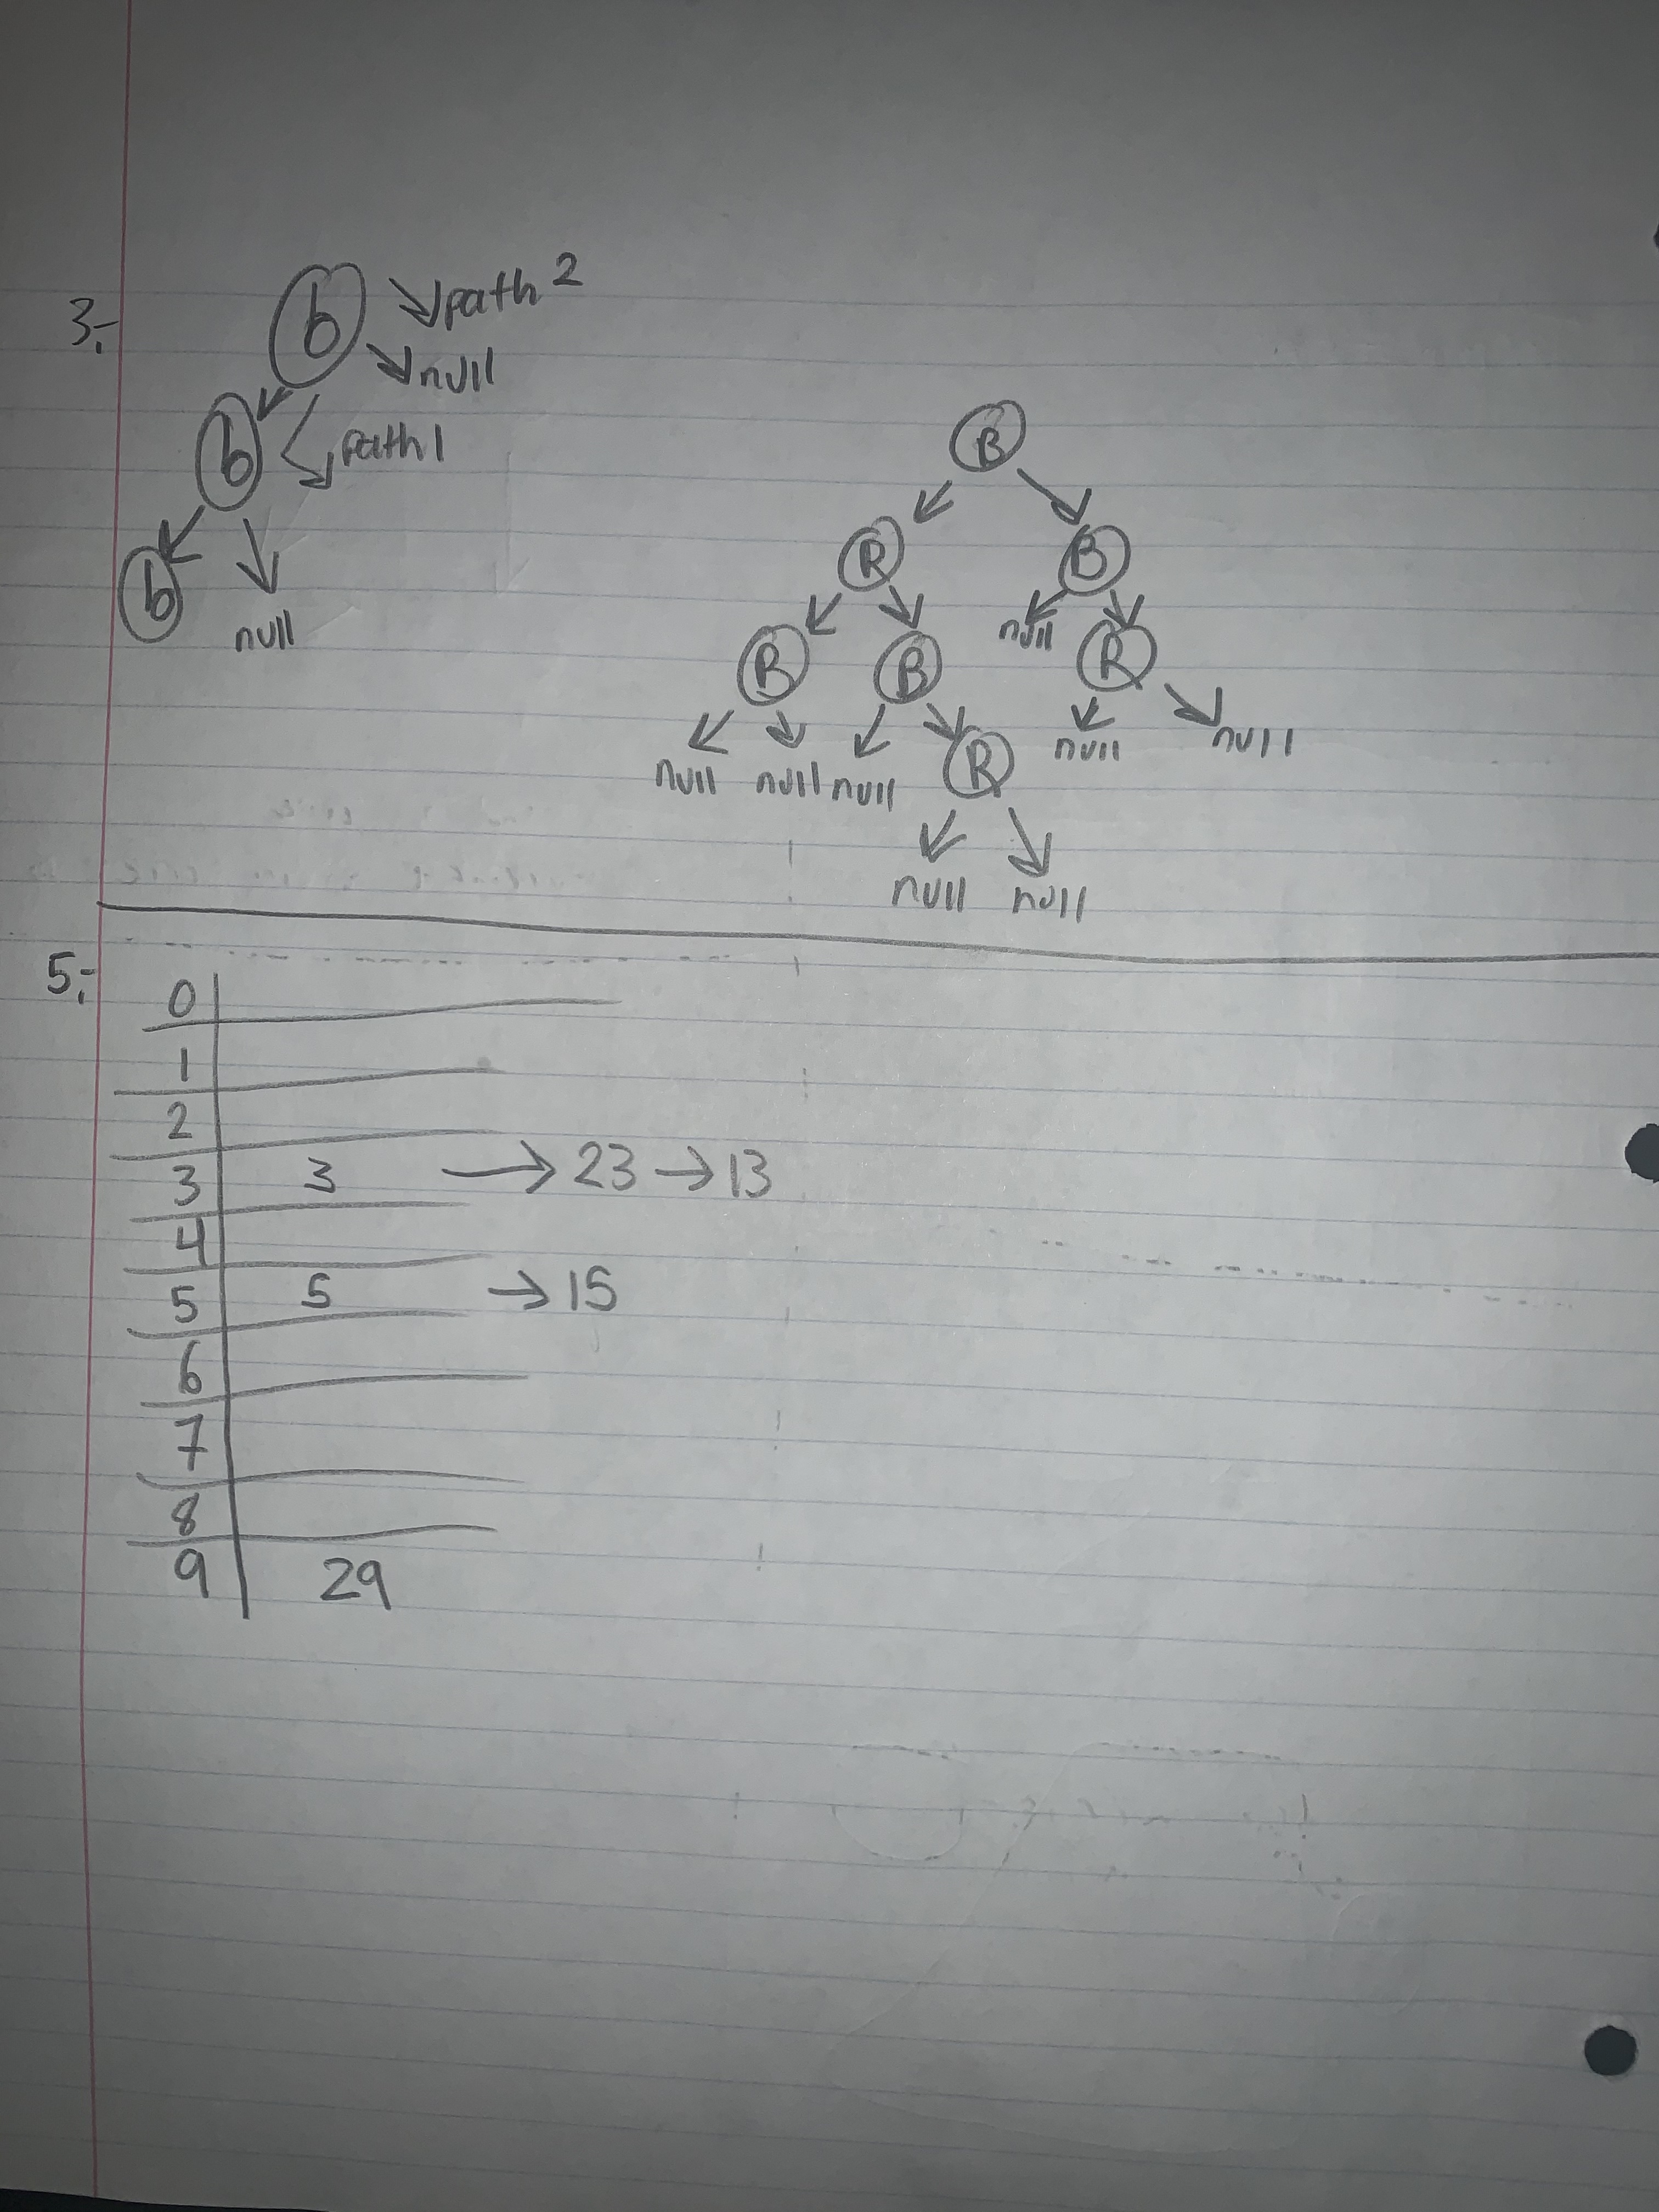 3.-
b
path 2
null
b
path 1
b
null
B
R
B
B
B
null
R
null
null
null
R
null
null
null
null
5.-
0
1
2
3 3 → 23 → 13
4
5 5 → 15
6
7
8
9 29